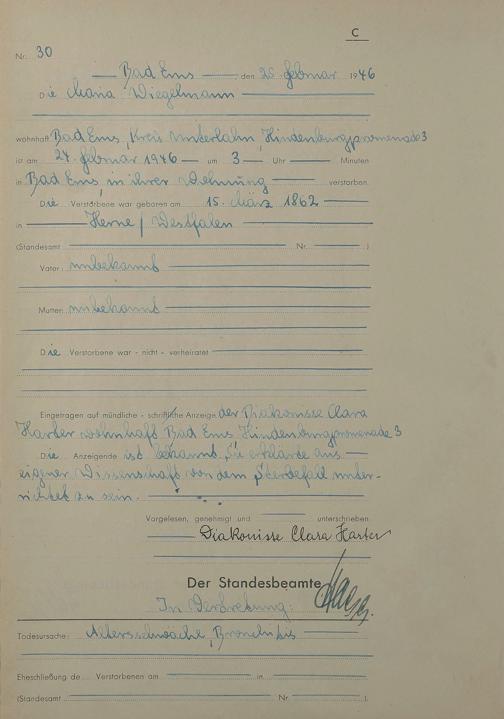 C
Nr. 30
Bad Ems den 26. Februar 1946
Die Maria Wiegelmann
wohnhaft Bad Ems, Kreis Unterlahn, Hindenburgpromenade 3
ist am 24. Februar 1946 um 3 Uhr Minuten
in Bad Ems, in ihrer Wohnung verstorben.
Die Verstorbene war geboren am 15. März 1862
in Herne / Westfalen
(Standesamt Nr. )
Vater: unbekannt
Mutter: unbekannt
Die Verstorbene war - nicht - verheiratet
Eingetragen auf mündliche - schriftliche Anzeige der Diakonisse Clara
Harter wohnhaft Bad Ems Hindenburgpromenade 3
Die Anzeigende ist bekannt. Sie erklärte aus
eigener Wissenschaft von dem Sterbefall unter-
richtet zu sein.
Vorgelesen, genehmigt und unterschrieben
Diakonisse Clara Harter
Der Standesbeamte
In Vertretung:
Todesursache: Altersschwäche, Bronchitis
Eheschließung de Verstorbenen am in
(Standesamt Nr. ).